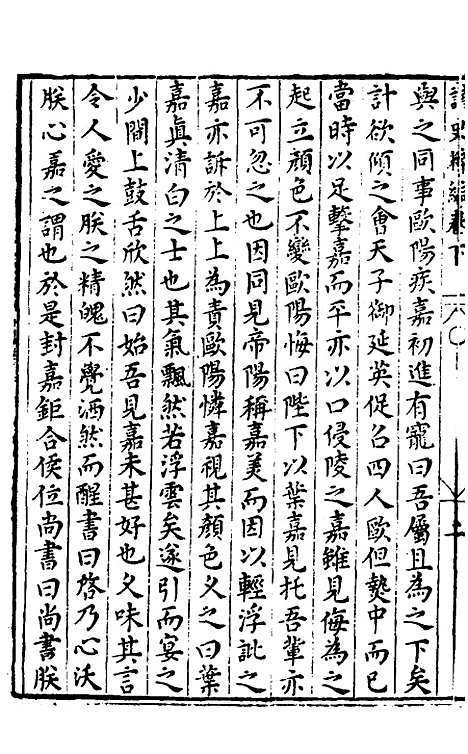 與之同事歐陽疾嘉初進有寵曰吾屬且為之下矣
計欲傾之會天子御延英促召四人歐但𤍠中而已
當時以足擊嘉而平亦以口侵陵之嘉雖見侮為之
起立顏色不變歐陽悔曰陛下以葉嘉見托吾輩亦
不可忽之也因同見帝陽稱嘉美而因以輕浮訿之
嘉亦訴於上上為責歐陽憐嘉視其顏色久之曰葉
嘉真清白之士也其氣飄然若浮雲矣遂引而宴之
少間上鼓舌欣然曰始吾見嘉未甚好也久味其言
令人愛之朕之精魄不覺洒然而醒書曰啓乃心沃
朕心嘉之謂也於是封嘉鉅合侯位尚書曰尚書朕